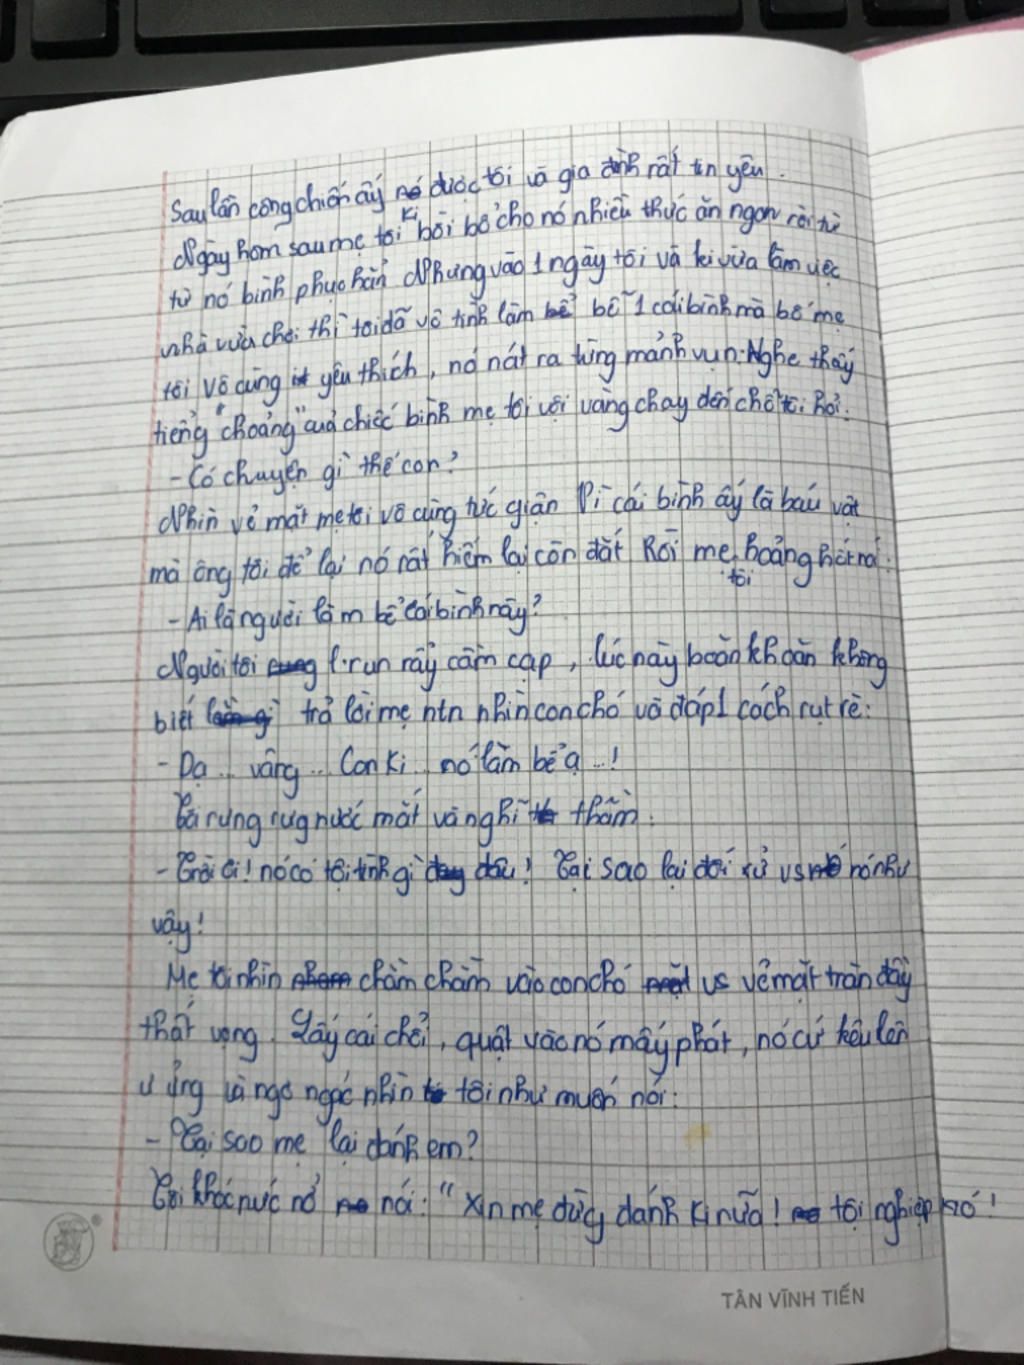 Sau lần công chiến ấy nó được tôi và gia đình rất tin yêu.
Ngày hôm sau mẹ tôi Ki bồi bổ cho nó nhiều thức ăn ngon rồi từ
từ nó bình phục hẳn Nhưng vào 1 ngày tôi và ki vừa làm việc
nhà vừa chơi thì tôi đã vô tình làm bể 1 cái bình mà bố mẹ
tôi vô cùng yêu thích, nó nát ra từng mảnh vụn. Nghe thấy
tiếng "choảng" cuả chiếc bình mẹ tôi vội vàng chạy đến chỗ tôi hỏi:
- Có chuyện gì thế con?
Nhìn vẻ mặt mẹ tôi vô cùng tức giận Vì cái bình ấy là báu vật
mà ông tôi để lại nó rất hiếm lại còn đắt Rồi mẹ tôi hoảng hốt nói:
- Ai là người làm bể cái bình này?
Người tôi run rẩy cầm cập, lúc này băn khoăn không
biết trả lời mẹ ntn nhìn con chó và đáp 1 cách rụt rè:
- Dạ... vâng... Con Ki... nó làm bể ạ...!
Tôi rưng rưng nước mắt và nghĩ thầm:
- Trời ơi! nó có tội tình gì đâu! Tại sao lại đối xử vs nó như
vậy!
Mẹ tôi nhìn chằm chằm vào con chó vs vẻ mặt tràn đầy
thất vọng. Lấy cái chổi, quật vào nó mấy phát, nó cứ kêu lên
ư ử và ngơ ngác nhìn tôi như muốn nói:
- Tại sao mẹ lại đánh em?
Tôi khóc nức nở nói: "Xin mẹ đừng đánh Ki nữa! tội nghiệp nó!
TÂN VĨNH TIẾN